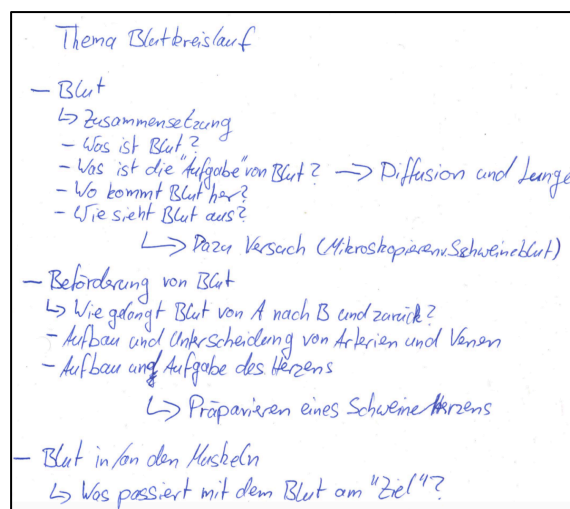 Thema Blutkreislauf
– Blut
↳ Zusammensetzung
- Was ist Blut?
- Was ist die "Aufgabe" von Blut? → Diffusion und Lunge
- Wo kommt Blut her?
- Wie sieht Blut aus?
↳ Dazu Versuch (Mikroskopieren v. Schweineblut)
– Beförderung von Blut
↳ Wie gelangt Blut von A nach B und zurück?
- Aufbau und Unterscheidung von Arterien und Venen
- Aufbau und Aufgabe des Herzens
↳ Präparieren eines Schweine Herzens
– Blut in/an den Muskeln
↳ Was passiert mit dem Blut am "Ziel"?